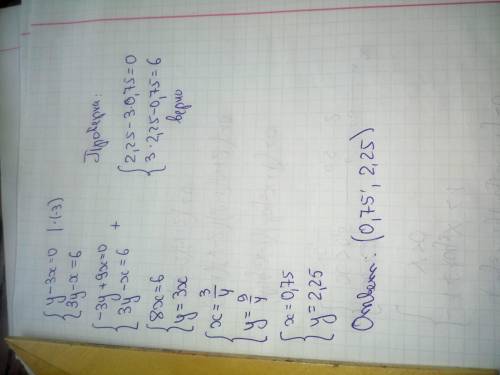 { y-3x=0 |·(-3)
{ 3y-x=6
{ -3y+9x=0
{ 3y-x=6 +
{ 8x=6
{ y=3x
{ x=3/4
{ y=9/4
{ x=0,75
{ y=2,25
Ответ: (0,75; 2,25)
Проверка:
{ 2,25-3·0,75=0
{ 3·2,25-0,75=6
верно